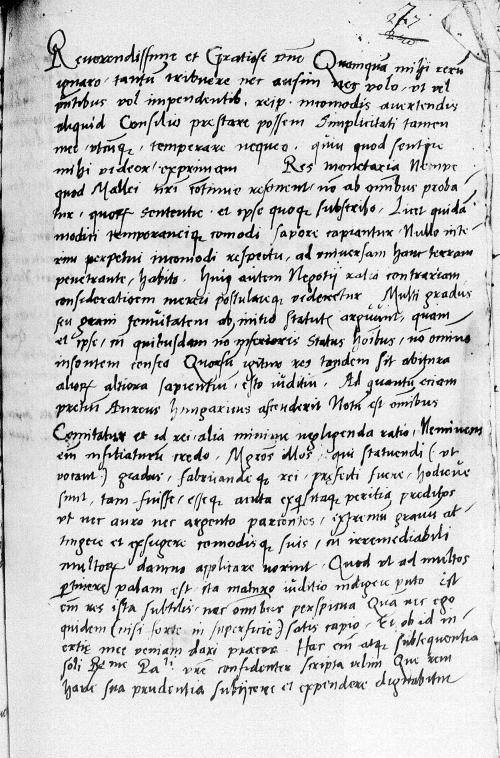 Reverendissime et Gratiose dne Quamqua mihi reru
ignaro, tantu tribuere nec ausim nec volo, ut vel
pntibus vel impendentib. reip. incomodis avertendis
aliquid Consilio prestare possem Simplicitati tamen
mee utcuq, temperare nequeo, quin quod sentire
mihi videor, exprimam Res monetaria Nempe
quod Mallei tui cotinue resonent, no ab omnibus proba
tur, quoru sententie, et ipse quoque subscribo, Licet quida
modici temporaneiq comodi sapore capiantur Nullo inte-
rim perpetui incomodi respectu, ad universam hanc terram
penetrante, habito. Huius autem Negotii ratio contrariam
considerationem mereri postulareq videretur. Multi gradus
seu grani tenuitatem ab initio statute arguunt, quam
et ipse, in quibusdam no inferioris status hoibus, no omnino
insontem censeo Quorsu igitur res tandem sit abitura
alioru altiora sapientiu, esto iuditiu, Ad quantu etiam
pretiu Aureus hungaricus ascenderit Notu est omnibus
Comitatur et id rei alia minime negligenda ratio, Neminem
em infitiaturu credo, Mgros illos, qui statuendi (ut
vocant) gradus, fabricandeq rei, prefecti fuere, hodieque
sint, tam fuisse, esseq acuta exquisitaq peritia preditos
ut nec auro nec argento parcentes, extremu gravis at-
tingere et exsugere comodisq suis, cu irremediabili
multoru damno applicare norint. Quod vel ad multos
ptinere palam est ista maturo iuditio indigere puto Est
em res ista subtilis, nec omnibus perspicua Qua nec ego
quidem (nisi forte in superficie) satis capio, Et ob id in-
ertie mee veniam dari precor. Hac em atq subsequentia
soli Rme Pa.ti vre confidenter scripta velim Que rem
hanc sua prudentia subijcere et expendere dignabitur